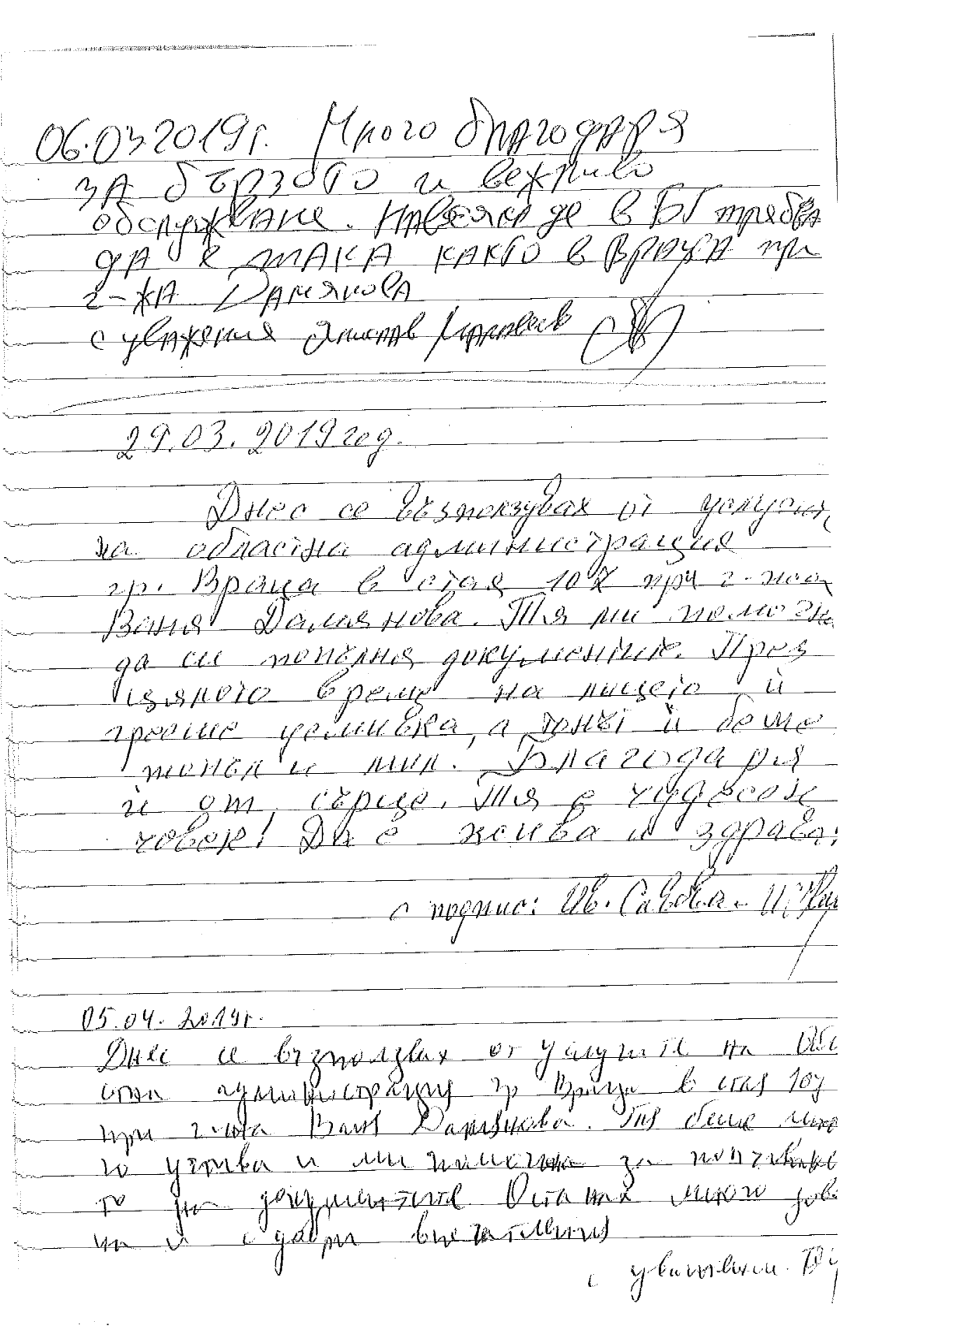 06.03 2019г. Много благодаря
за бързото и вежливо
обслужване. Навсякъде в БГ трябва
да е така както в Враца при
г-жа Дамянова
с уважения
29.03.2019 год.
Днес се възползвах от услугит
на областна администрация
гр. Враца в стая 107 при г-жа
Ваня Дамянова. Тя ми помогна
да си попълня документите. През
цялото време на лицето й
грееше усмивка, а тонът й беше
топъл и мил. Благодаря
й от сърце. Тя е чудесен
човек! Да е жива и здрава!
с подпис: Ив. Савова
05.04.2019г.
Днес се възползвах от услугите на Обл
стна администрация гр Враца в стая 107
при г-жа Ваня Дамянова. Тя беше мно
го учтива и ми помогна за попълване
то на документите Останах много дово
на и с добри впечатления
с